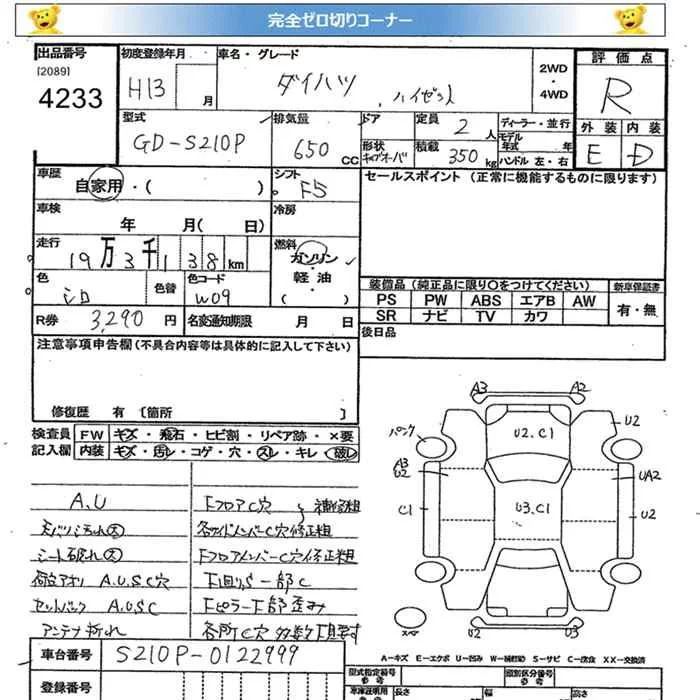 完全ゼロ切りコーナー
出品番号 初度登録年月 車名・グレード 評価点
[2089] 4233
H13 月 ダイハツ ハイゼット 2WD・4WD R
型式 排気量 ドア 定員 2人 ディーラー・並行 外装 内装
GD-S210P 650 CC 形状 キャブオーバ 積載 350 kg モデル年式 年 ハンドル 左・右 E D
車歴 自家用・( ) シフト F5 セールスポイント (正常に機能するものに限ります)
車検 年 月( 日) 冷房
走行 19万3千138km 燃料 ガソリン・軽油・( )
色 シロ 色替 色コード W09
装備品 (純正品に限り○をつけてください) 新車保証書
PS PW ABS エアB AW 有・無
SR ナビ TV カワ
R券 3,290円 名変通知期限 月 日 後日品
注意事項申告欄 (不具合内容等は具体的に記入して下さい)
修復歴 有 [箇所 ]
検査員 FW キズ・飛石・ヒビ割・リペア跡・×要
記入欄 内装 キズ・汚レ・コゲ・穴・スレ・キレ・破レ
A.U FフロアC穴 補修粗
天バリ汚れ大 各サイドメンバーC穴修正粗
シート破れ大 FフロアメンバーC穴修正粗
荷台アオリ A.U.S.C穴 下回りS一部C
セットバック A.U.S.C Fピラー下部歪み
アンテナ折れ 各所C穴多数
A3 A2
U2.C1 U2
パンク
A3
U2 UA2
C1 U3.C1 U2
スペア U2 U3
A-キズ E-エクボ U-凹み W-補修跡 S-サビ C-腐食 XX-交換済
車台番号 S210P-0122999 型式指定番号 参考 類別区分番号 参考
登録番号 車庫証明用 参考 長さ 幅 高さ